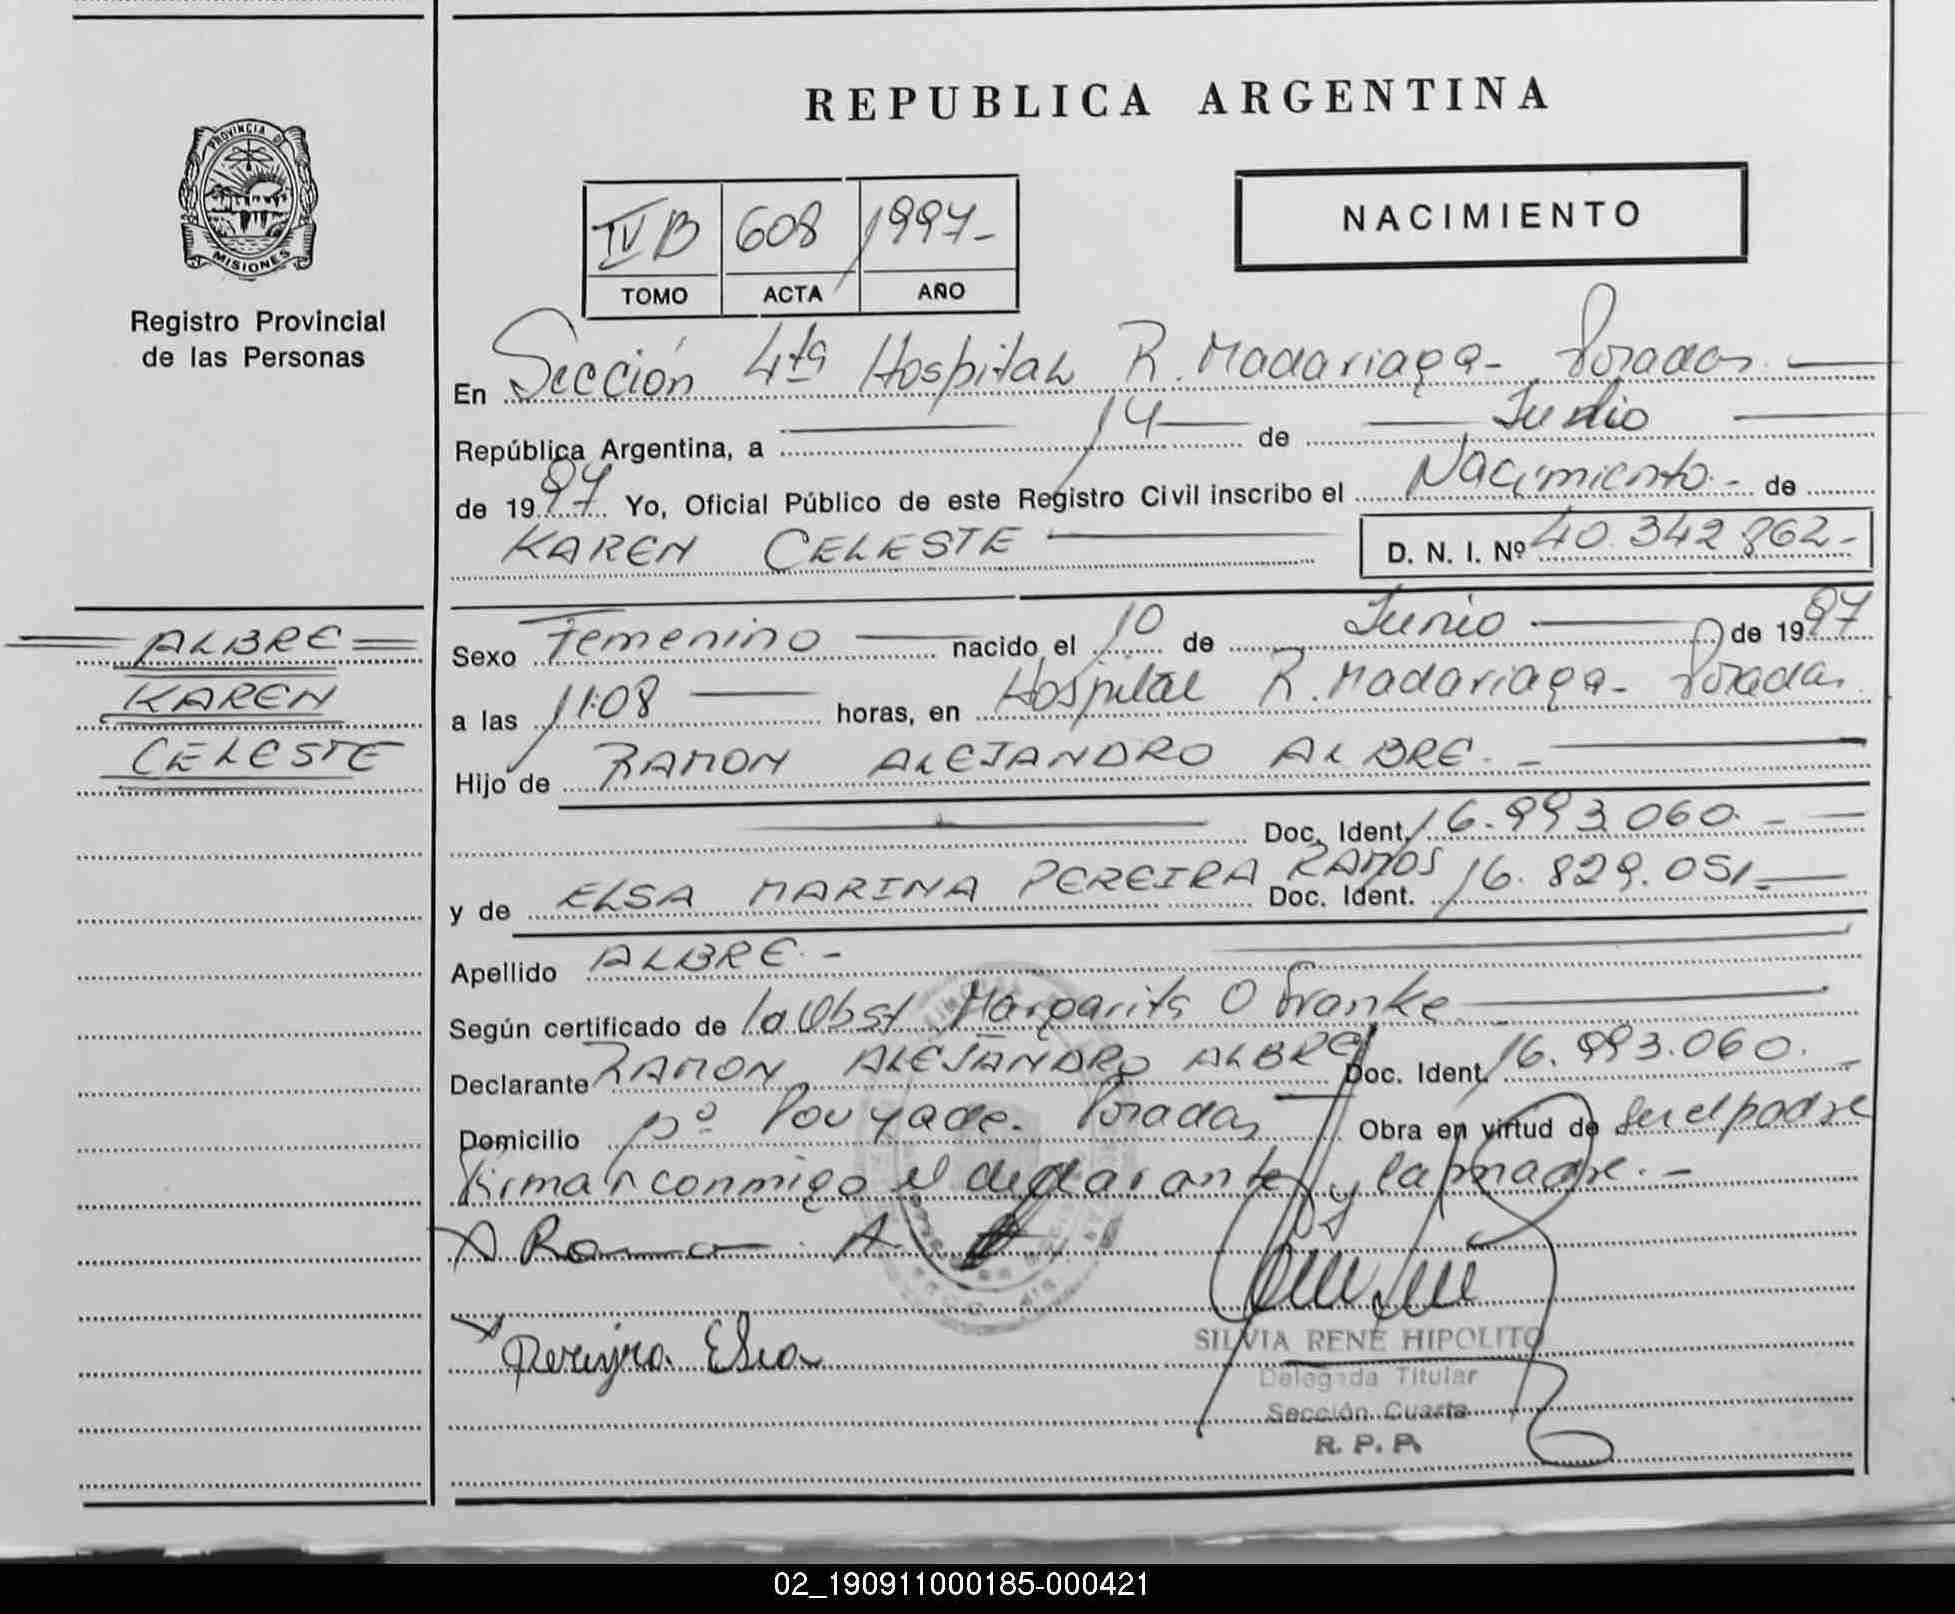 REPUBLICA ARGENTINA
PROVINCIA DE
MISIONES
Registro Provincial
de las Personas
IV B 608 1997-
TOMO ACTA AÑO
NACIMIENTO
En Sección 4ta Hospital R. Madariaga- Posadas.
República Argentina, a 14 de Junio
de 1997 Yo, Oficial Público de este Registro Civil inscribo el Nacimiento.- de
KAREN CELESTE D. N. I. Nº 40.342.862-
ALBRE
KAREN
CELESTE
Sexo Femenino nacido el 10 de Junio de 1997
a las 11:08 horas, en Hospital R. Madariaga- Posadas.
Hijo de RAMON ALEJANDRO ALBRE.-
Doc. Ident. 16.993.060.-
y de ELSA MARINA PEREIRA RAMOS Doc. Ident. 16.829.051.-
Apellido ALBRE.-
Según certificado de la Obst Margarita O Franke
Declarante RAMON ALEJANDRO ALBRE Doc. Ident. 16.993.060.
Domicilio Bº Pouyade. Posadas Obra en virtud de ser el padre
Firman conmigo el declarante y la madre.-
X Ramon A
X Pereyra Elsa
SILVIA RENE HIPOLITO
Delegada Titular
Sección Cuarta
R. P. P.
02_190911000185-000421